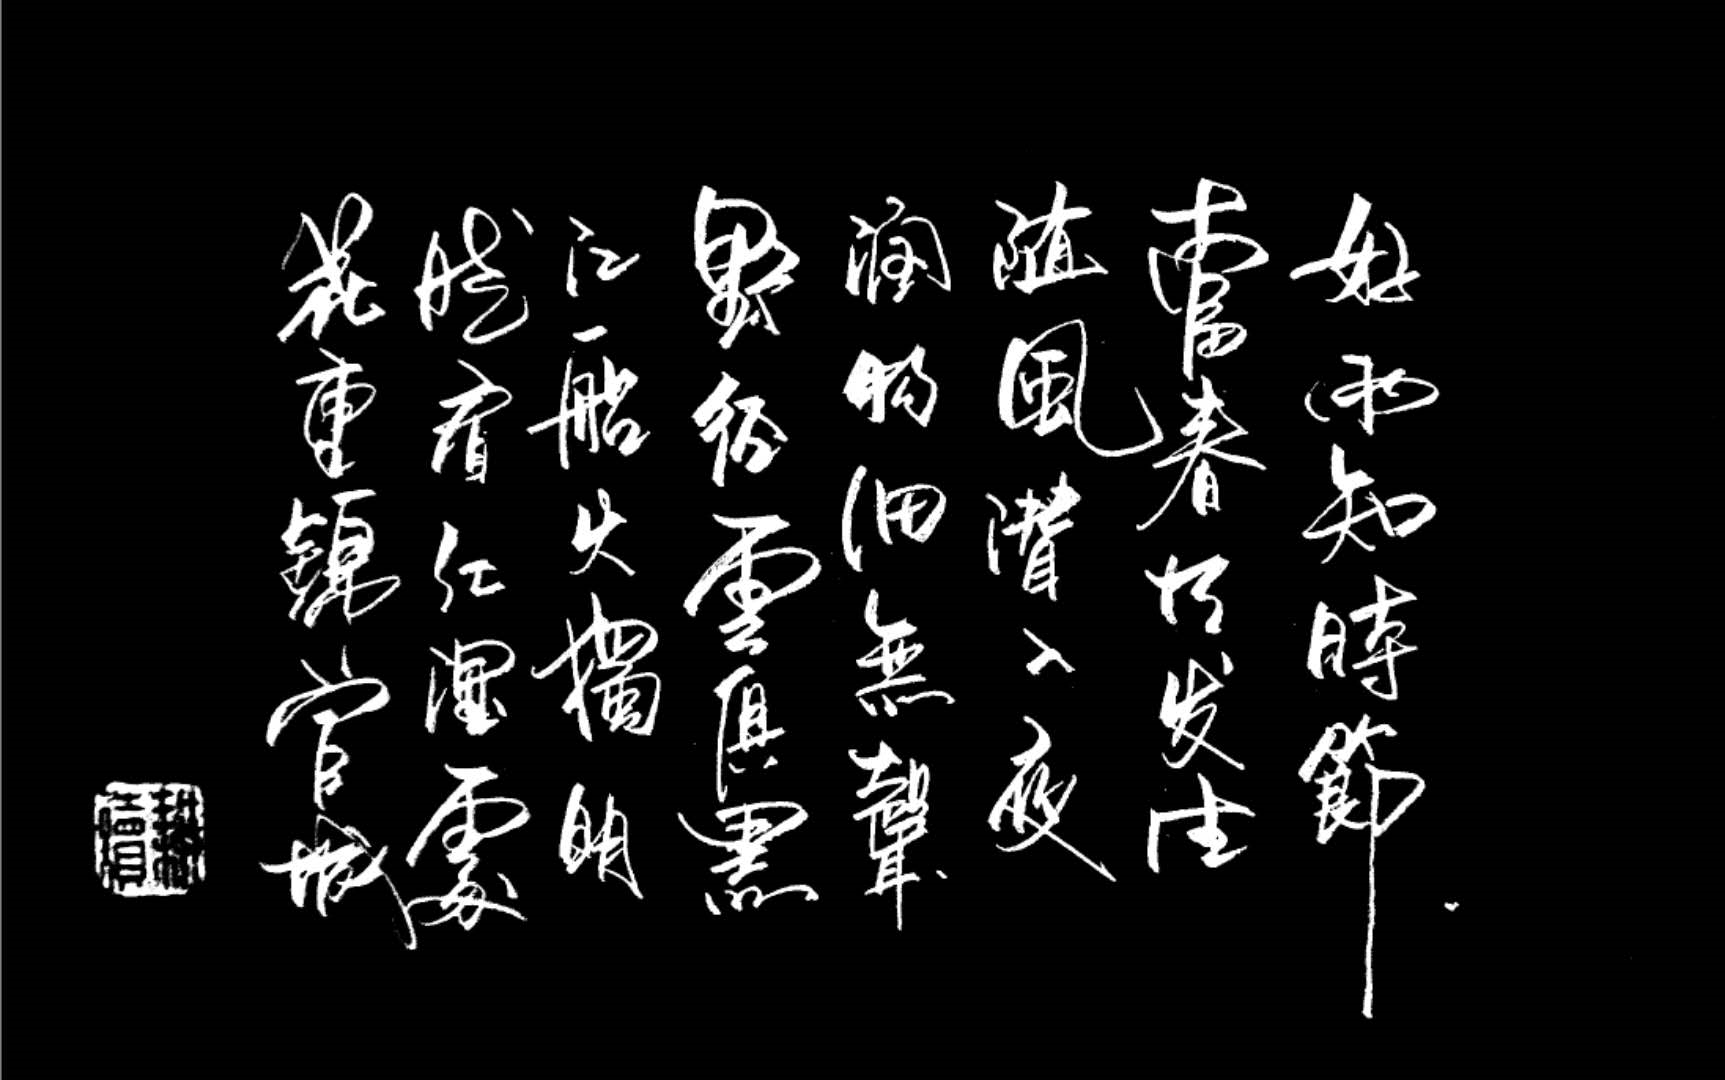 好雨知時節
當春乃发生
随風潛入夜
潤物細無聲
野徑雲俱黑
江船火獨明
曉看红濕處
花重錦官城